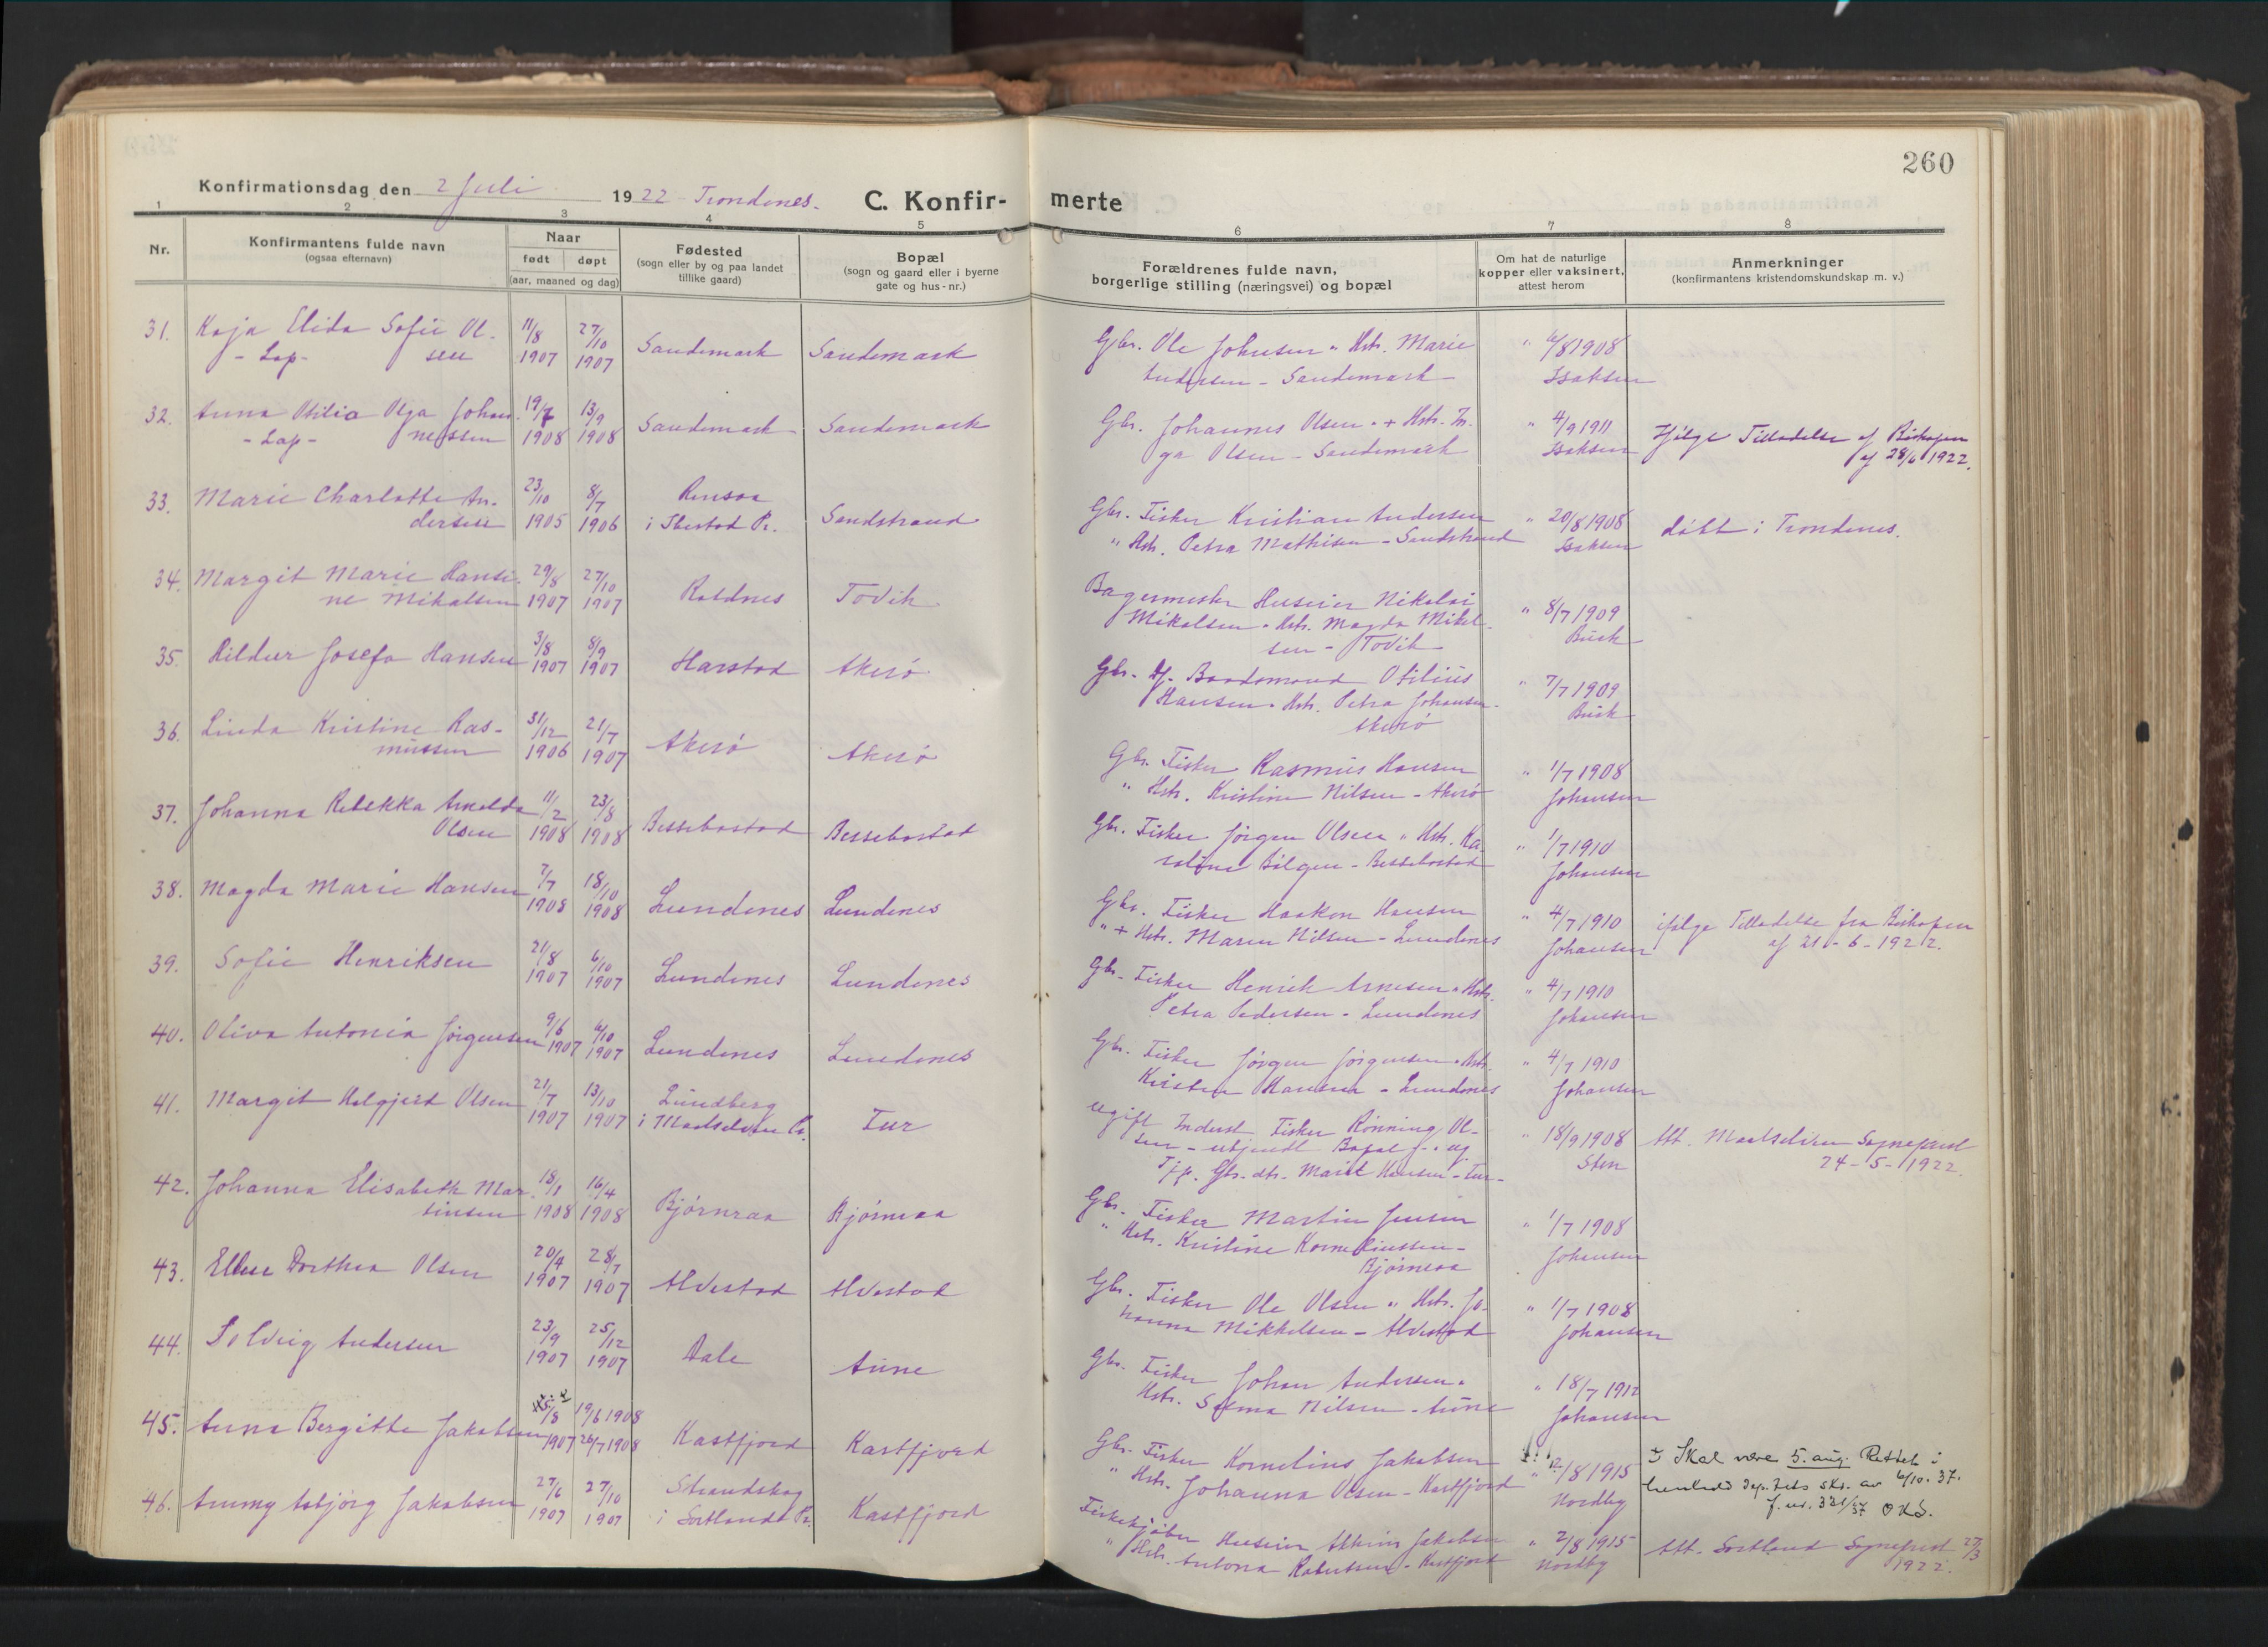 260
Konfirmationsdag den 2 Juli 1922 Trondenes.
C. Konfir- merte
1 2 3 4 5 6 7 8
Nr.
Konfirmantens fulde navn
(ogsaa efternavn)
Naar
født døpt
(aar, maaned og dag)
Fødested
(sogn eller by og paa landet
tillike gaard)
Bopæl
(sogn og gaard eller i byerne
gate og hus-nr.)
Forældrenes fulde navn,
borgerlige stilling (næringsvei) og bopæl
Om hat de naturlige
kopper eller vaksinert,
attest herom
Anmerkninger
(konfirmantens kristendomskundskap m. v.)
31. Kaja Elida Sofie Ol- 11/8 27/10 Sandemark Sandemark Gbr. Ole Johnsen " Hstr. Marie " 6/8 1908
- Lap - sen 1907 1907 Andersen - Sandemark Isaksen
32. Anna Otilia Olga Johan- 19/7 13/9 Sandemark Sandemark Gbr. Johannes Olsen " + Hstr. In- " 4/9 1911 Ifølge Tilladelse af Biskopen
- Lap - nessen 1908 1908 ga Olsen - Sandemark Isaksen af 28/6 1922.
33. Marie Charlotte An- 23/10 8/7 Rensaa Sandstrand Gbr. Fisker Kristian Andersen " 20/8 1908 døbt i Trondenes.
dersen 1905 1906 i Ibestad Pr. " Hstr. Petra Mathisen - Sandstrand Isaksen
34. Margit Marie Hansi- 29/8 27/10 Tovik Bagermester Husier Nikolai " 8/7 1909
ne Mikalsen 1907 1907 Mikalsen " Hstr. Magda Mikal- Buck
sen - Tovik
35. Hildur Josefa Hansen 3/8 8/9 Harstad Akerø Gbr. Baadsmand Otilius " 7/7 1909
1907 1907 Hansen " Hstr. Petra Johansen - Buck
Akerø
36. Linda Kristine Ras- 31/12 21/7 Akerø Akerø Gbr. Fisker Rasmus Hansen " 1/7 1908
mussen 1906 1907 " Hstr. Kristine Nilsen - Akerø Johansen
37. Johanna Rebekka Arnolda 11/2 23/8 Bessebostad Bessebostad Gbr. Fisker Jørgen Olsen " Hstr. Ka- " 1/7 1910
Olsen 1908 1908 - Bessebostad Johansen
38. Magda Marie Hansen 7/7 18/10 Lundenes Lundenes Gbr. Fisker Haakon Hansen " 4/7 1910 ifølge Tilladelse fra Biskopen
1908 1908 " + Hstr. Maren Nilsen - Lundenes Johansen af 21-6-1922.
39. Sofie Henriksen 21/8 6/10 Lundenes Lundenes Gbr. Fisker Henrik Arnesen " Hstr. " 4/7 1910
1907 1907 Petra Pedersen - Lundenes Johansen
40. Oliva Antonia Jørgensen 9/6 6/10 Lundenes Lundenes Gbr. Fisker Jørgen Jørgensen " Hstr. " 4/7 1910
1907 1907 Hansen - Lundenes Johansen
41. Margit Helgjerd Olsen 21/7 13/10 Lundberg Fur Ugift Inderst Fisker Rønning Ol- " 18/9 1908 Att. Maalselven Sogneprest
1907 1907 i Maalselven Pr. sen - ukjendt Bopæl - og Sten 24-5-1922.
Gbr. dtr. Marit Hansen - Fur -
42. Johanna Elisabeth Mar- 18/1 16/4 Bjørnraa Bjørnraa Gbr. Fisker Martin Jensen " 1/7 1908
tinsen 1908 1908 " Hstr. Kristine Korneliussen - Johansen
Bjørnraa
43. Ellen Dorthea Olsen 20/4 28/7 Alvestad Alvestad Gbr. Fisker Ole Olsen " Hstr. Jo- " 1/7 1908
1907 1907 hanna Mikkelsen - Alvestad Johansen
44. Solveig Andersen 23/9 25/12 Dale Aune Gbr. Fisker Johan Andersen " " 18/7 1912
1907 1907 Hstr. Selma Nilsen - Aune Johansen
45. Anna Bergitte Jakobsen 5/8 19/6 1908 Kastfjord Kastfjord Gbr. Fisker Kornelius Jakobsen " 12/8 1915 Skal være 5. aug. Rettet i
1907 26/7 1908 " Hstr. Johanna Olsen - Kastfjord Nordby henhold Dep.tets skr. av 6/10.37.
46. Ammy Asbjørg Jakobsen 27/6 27/10 Strandskog Kastfjord Fiskekjøber Husier Jakobsen " 2/8 1915 Att. Sortland Sogneprest 27/3
1907 1907 i Sortlands Pr. " Hstr. Antona Robertsen - Kastfjord Nordby 1922.